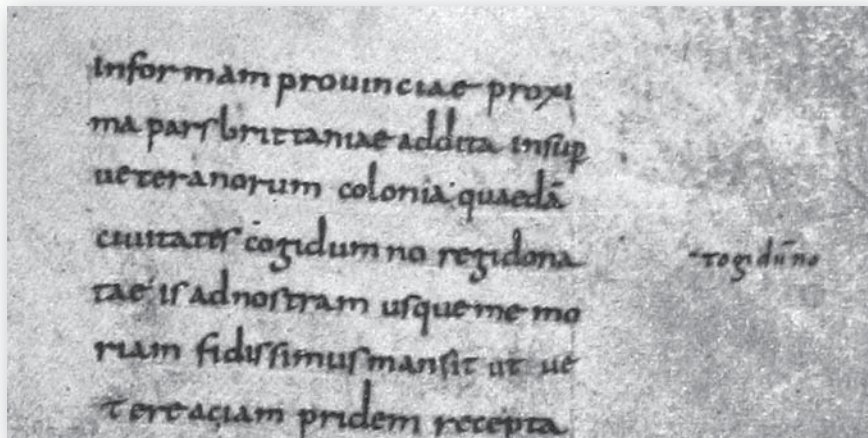 informam prouinciae proxi
ma pars brittaniae addita insup̄
ueteranorum colonia quaedā
ciuitates cogidumno regi dona
tae is ad nostram usque memo
riam fidissimus mansit ut ue
tere ac iam pridem recepta
togidūno